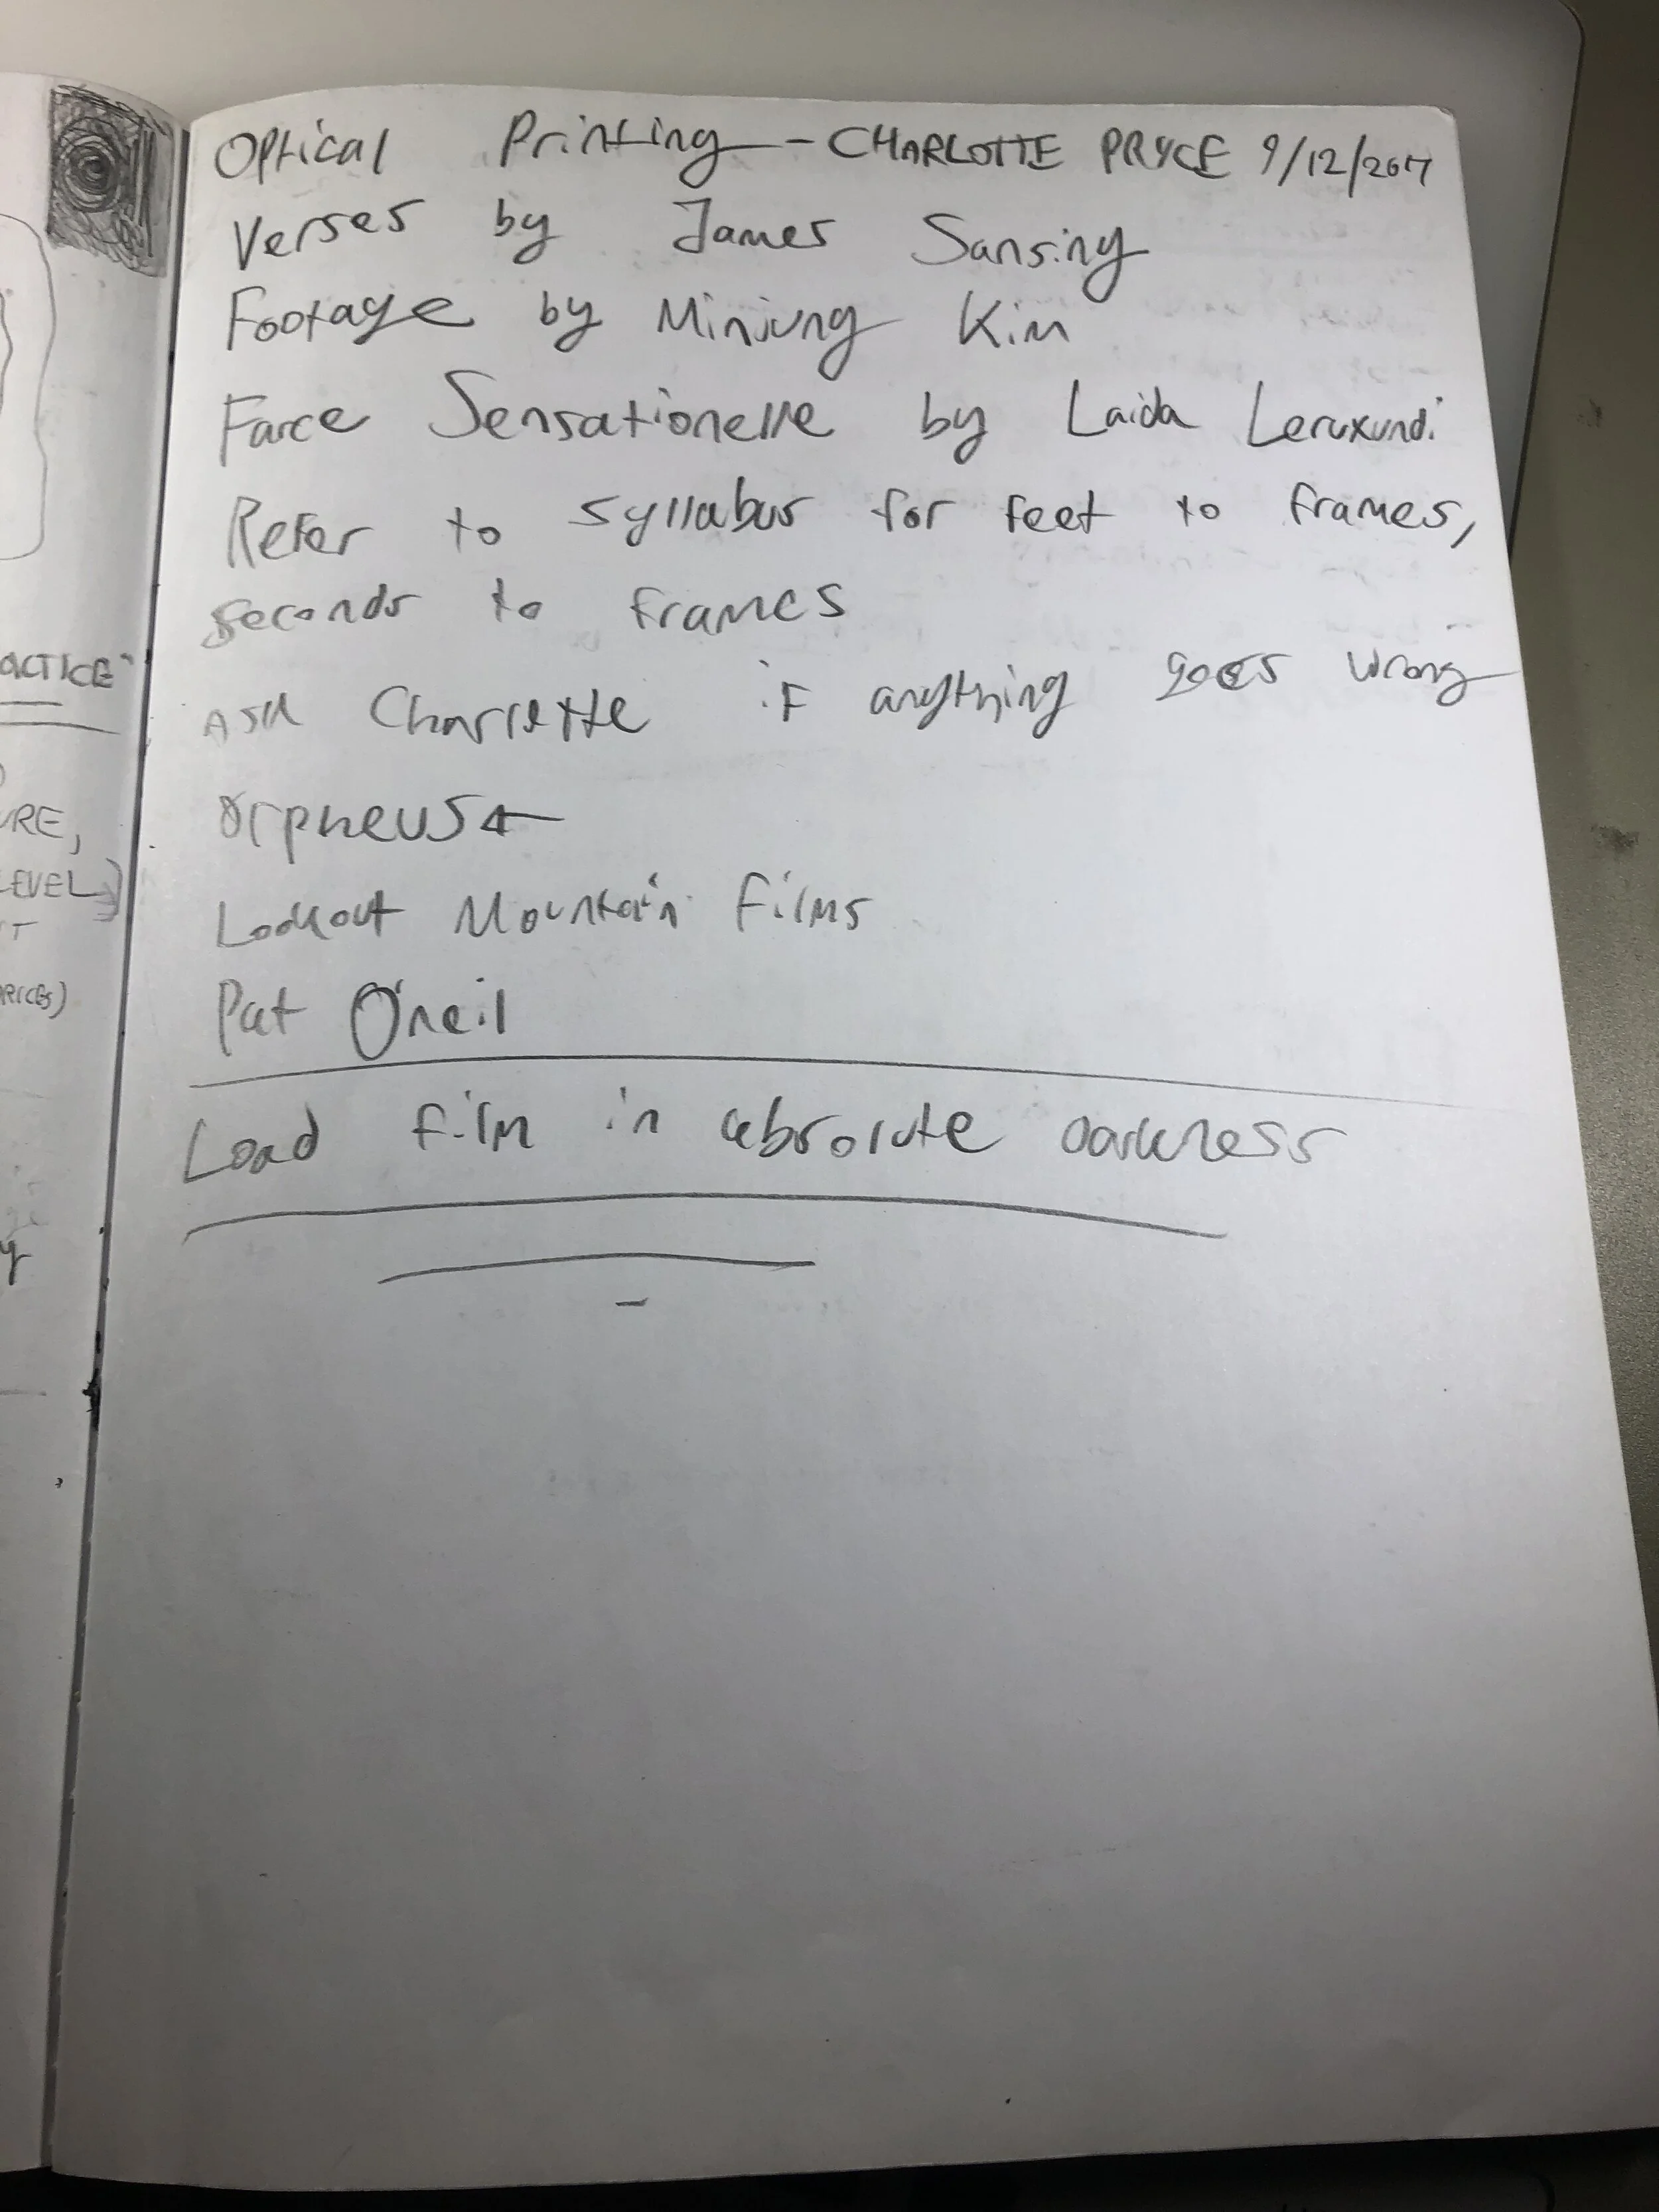 ACTICE"
URE,
LEVEL)
T
RICES)
y
Optical Printing - CHARLOTTE PRYCE 9/12/2017
Verses by James Sansing
Footage by Minjung Kim
Farce Sensationelle by Laida Leruxundi
Refer to syllabus for feet to frames,
seconds to frames
Ask Charlotte if anything goes wrong
Orpheus ←
Lookout Mountain Films
Pat O'neil
Load film in absolute darkness